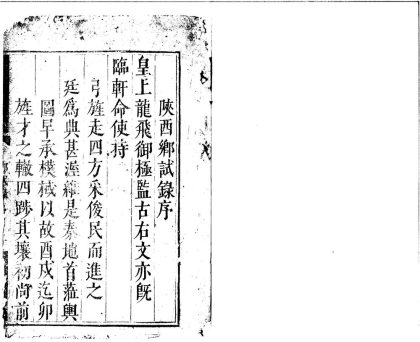 陝西鄉試錄序
皇上龍飛御極監古右文亦旣
臨軒命使持
弓旌走四方采俊民而進之
廷爲典甚渥維是秦地首蒞輿
圖早承棫樸以故酉戌迄卯
旌才之轍四踄其壤初尙前